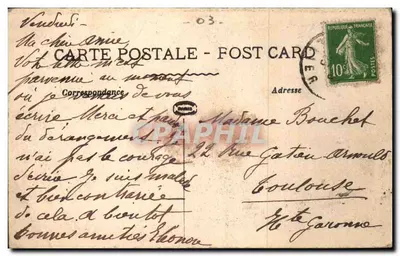 Vendredi
03.
Ma chère amie
Votre lettre m'est
CARTE POSTALE - POST CARD
parvenue au moment
Correspondance
Adresse
où je de vous
écrire Merci et pardon
du dérangement
n'ai pas le courage
d'écrire Je suis malade
et bien contrariée
de cela, à bientôt
bonnes amitiés
Madame Bouchet
22 Rue Gatien Arnoult
Toulouse
Hte Garonne
REPUBLIQUE FRANÇAISE
10c
POSTES
CPAPHIL